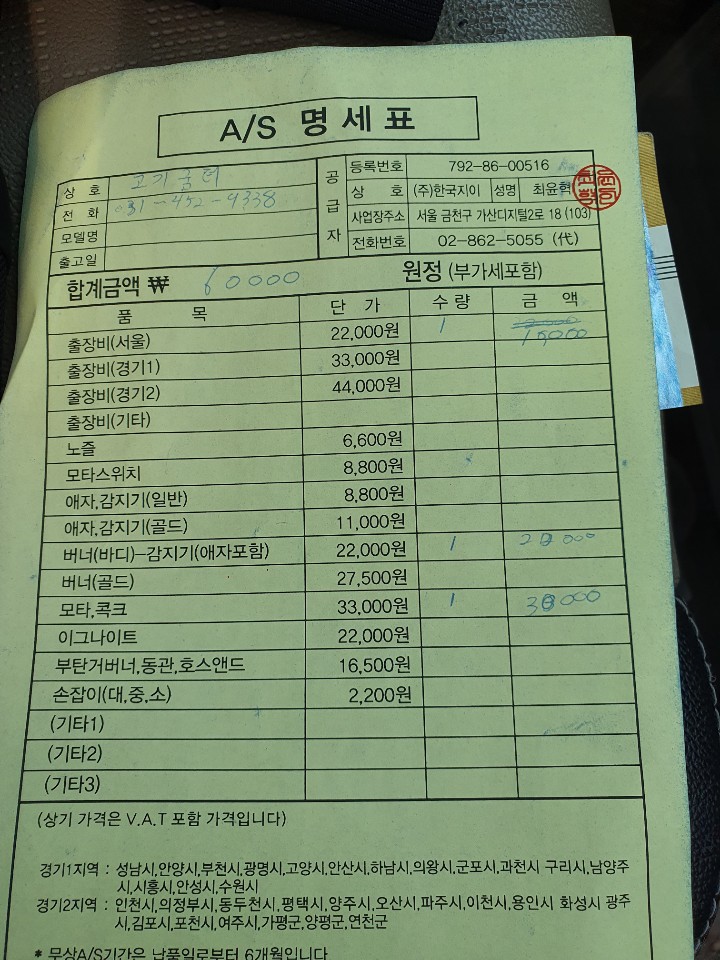 A/S 명세표
상 호 고기굼터
전 화 031-452-4338
모델명
출고일
공급자
등록번호 792-86-00516
상 호 (주)한국지이 성명 최윤혁
사업장주소 서울 금천구 가산디지털2로 18 (103)
전화번호 02-862-5055 (代)
합계금액 ₩ 60000 원정 (부가세포함)
품 목 단 가 수 량 금 액
출장비(서울) 22,000원 1 15,000
출장비(경기1) 33,000원
출장비(경기2) 44,000원
출장비(기타)
노즐 6,600원
모타스위치 8,800원
애자,감지기(일반) 8,800원
애자,감지기(골드) 11,000원
버너(바디)-감지기(애자포함) 22,000원 1
버너(골드) 27,500원
모타,콕크 33,000원 1
이그나이트 22,000원
부탄거버너,동관,호스앤드 16,500원
손잡이(대,중,소) 2,200원
(기타1)
(기타2)
(기타3)
(상기 가격은 V.A.T 포함 가격입니다)
경기1지역 : 성남시,안양시,부천시,광명시,고양시,안산시,하남시,의왕시,군포시,과천시 구리시,남양주
시,시흥시,안성시,수원시
경기2지역 : 인천시,의정부시,동두천시,평택시,양주시,오산시,파주시,이천시,용인시 화성시 광주
시,김포시,포천시,여주시,가평군,양평군,연천군
* 무상A/S기간은 납품일로부터 6개월입니다